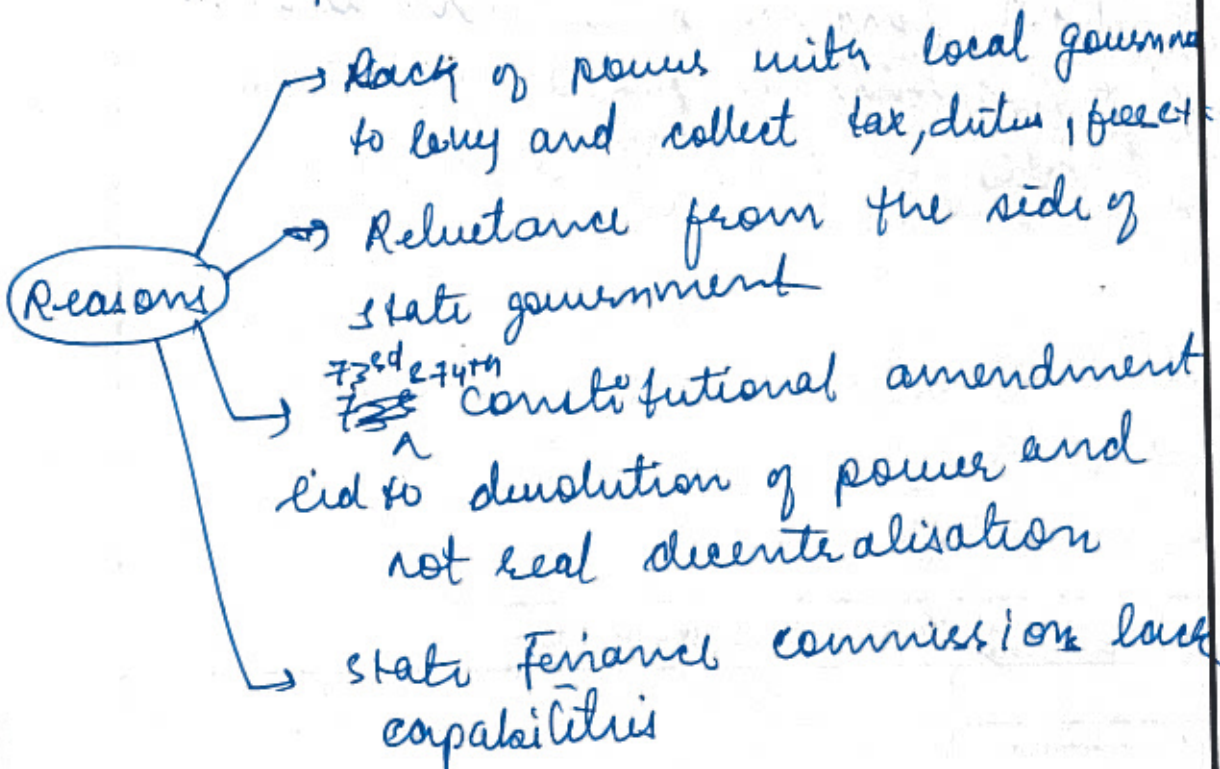 Lack of powers with local governme
to levy and collect tax, duties, fees etc
Reluctance from the side of
Reasons
state government
73rd & 74th
constitutional amendment
led to devolution of power and
not real decentralisation
state Finance commissions lack
capabilities